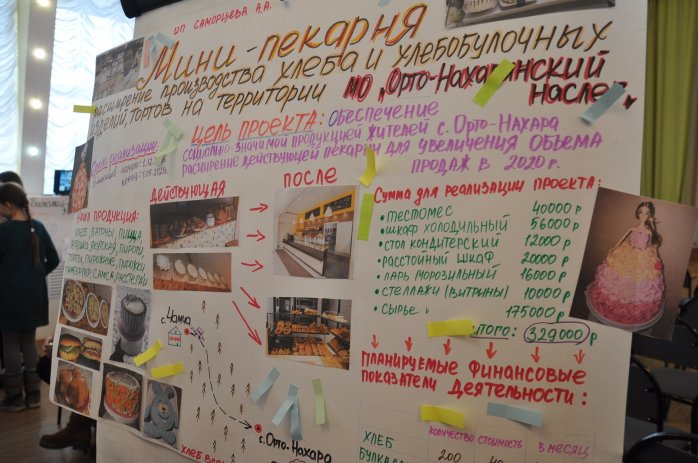 ИП САМОРЦЕВА А.А.
Мини-пекарня
расширение производства хлеба и хлебобулочных
изделий, тортов на территории МО "Орто-Нахаринский
наслег"
Цель проекта: Обеспечение
социально-значимой продукцией жителей с. Орто-Нахара
расширение действующей пекарни для увеличения объема
продаж в 2020 г.
Срок реализации:
начало: 1.12.
конец:
ДЕЙСТВУЮЩАЯ
ПОСЛЕ
Наша продукция:
хлеб, батоны, пицца,
торты, пирожные, пирожки
гамбургер, самса, расстегаи
Сумма для реализации проекта:
• тестомес 40000 р
• шкаф холодильный 56000 р
• стол кондитерский 12000 р
• расстойный шкаф 20000 р
• ларь морозильный 16000 р
• стеллажи (витрины) 10000 р
• сырье 175000 р
Итого: 329000 р
Планируемые финансовые
показатели деятельности:
количество стоимость в месяц
хлеб
200
с. Чамча
с. Орто-Нахара
хлеб